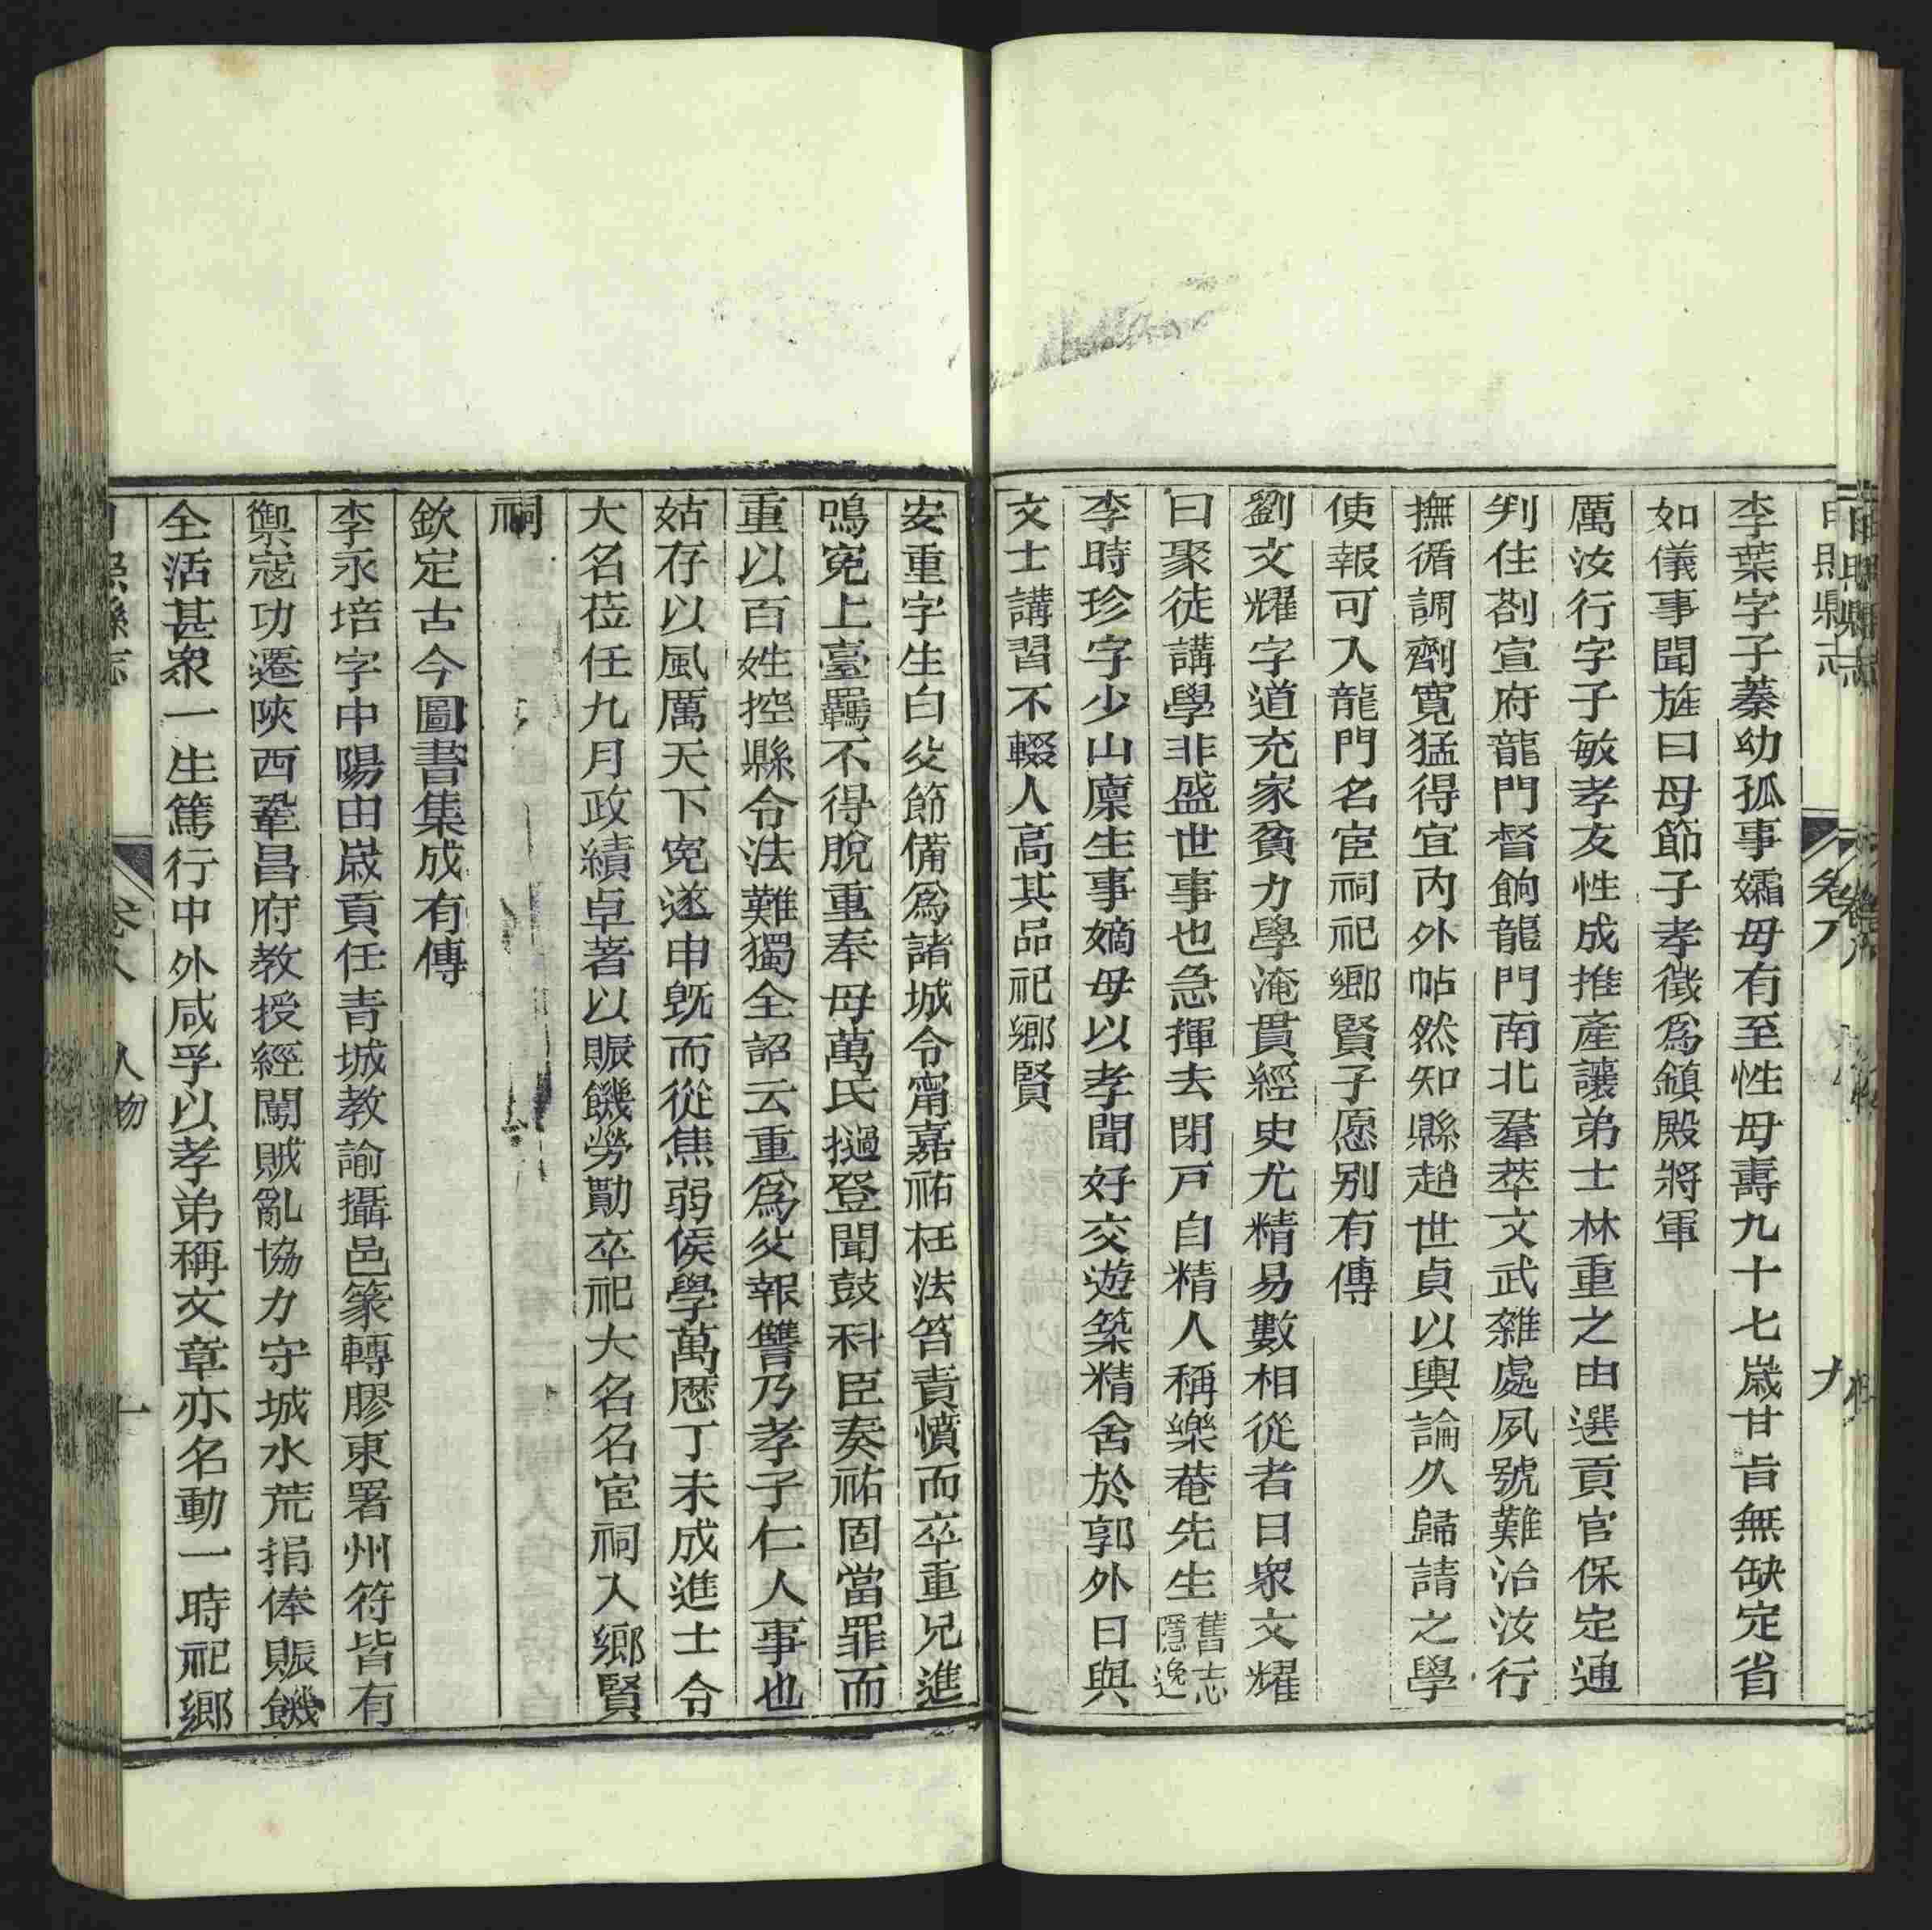 日照縣志
卷八
九
李葉字子蓁幼孤事孀母有至性母壽九十七歲甘旨無缺定省
如儀事聞旌曰母節子孝徵爲鎮殿將軍
厲汝行字子敏孝友性成推產讓弟士林重之由選貢官保定通
判住劄宣府龍門督餉龍門南北羣萃文武雜處夙號難治汝行
撫循調劑寬猛得宜内外帖然知縣趙世貞以輿論久歸請之學
使報可入龍門名宦祠祀鄉賢子愿别有傳
劉文耀字道充家貧力學淹貫經史尤精易數相從者日衆文耀
曰聚徒講學非盛世事也急揮去閉戸自精人稱樂菴先生舊志隱逸
李時珍字少山廩生事嫡母以孝聞好交遊築精舍於郭外日與
文士講習不輟人高其品祀鄉賢
安重字生白父節備爲諸城令甯嘉祐枉法笞責憤而卒重兄進
鳴寃上臺羈不得脫重奉母萬氏撾登聞鼓科臣奏祐固當罪而
重以百姓控縣令法難獨全詔云重爲父報讐乃孝子仁人事也
姑存以風厲天下寃遂申旣而從焦弱侯學萬厯丁未成進士令
大名莅任九月政績卓著以賑饑勞勩卒祀大名名宦祠入鄉賢
祠
欽定古今圖書集成有傳
李永培字中陽由歲貢任青城教諭攝邑篆轉膠東署州符皆有
禦寇功遷陝西鞏昌府教授經闖賊亂協力守城水荒捐俸賑饑
全活甚衆一生篤行中外咸孚以孝弟稱文章亦名動一時祀鄉
日照縣志
卷八
人物